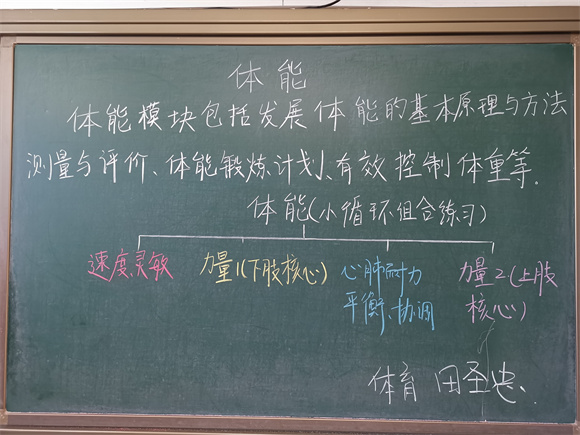 体能
体能模块包括发展体能的基本原理与方法
测量与评价、体能锻炼计划、有效控制体重等.
体能(小循环组合练习)
速度、灵敏
力量1(下肢核心)
心肺耐力
平衡、协调
力量2(上肢
核心)
体育 田圣忠.